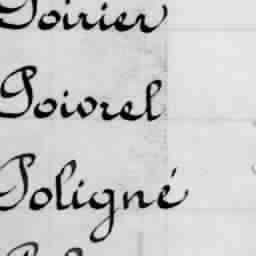 Poirier
Poivrel
Poligné